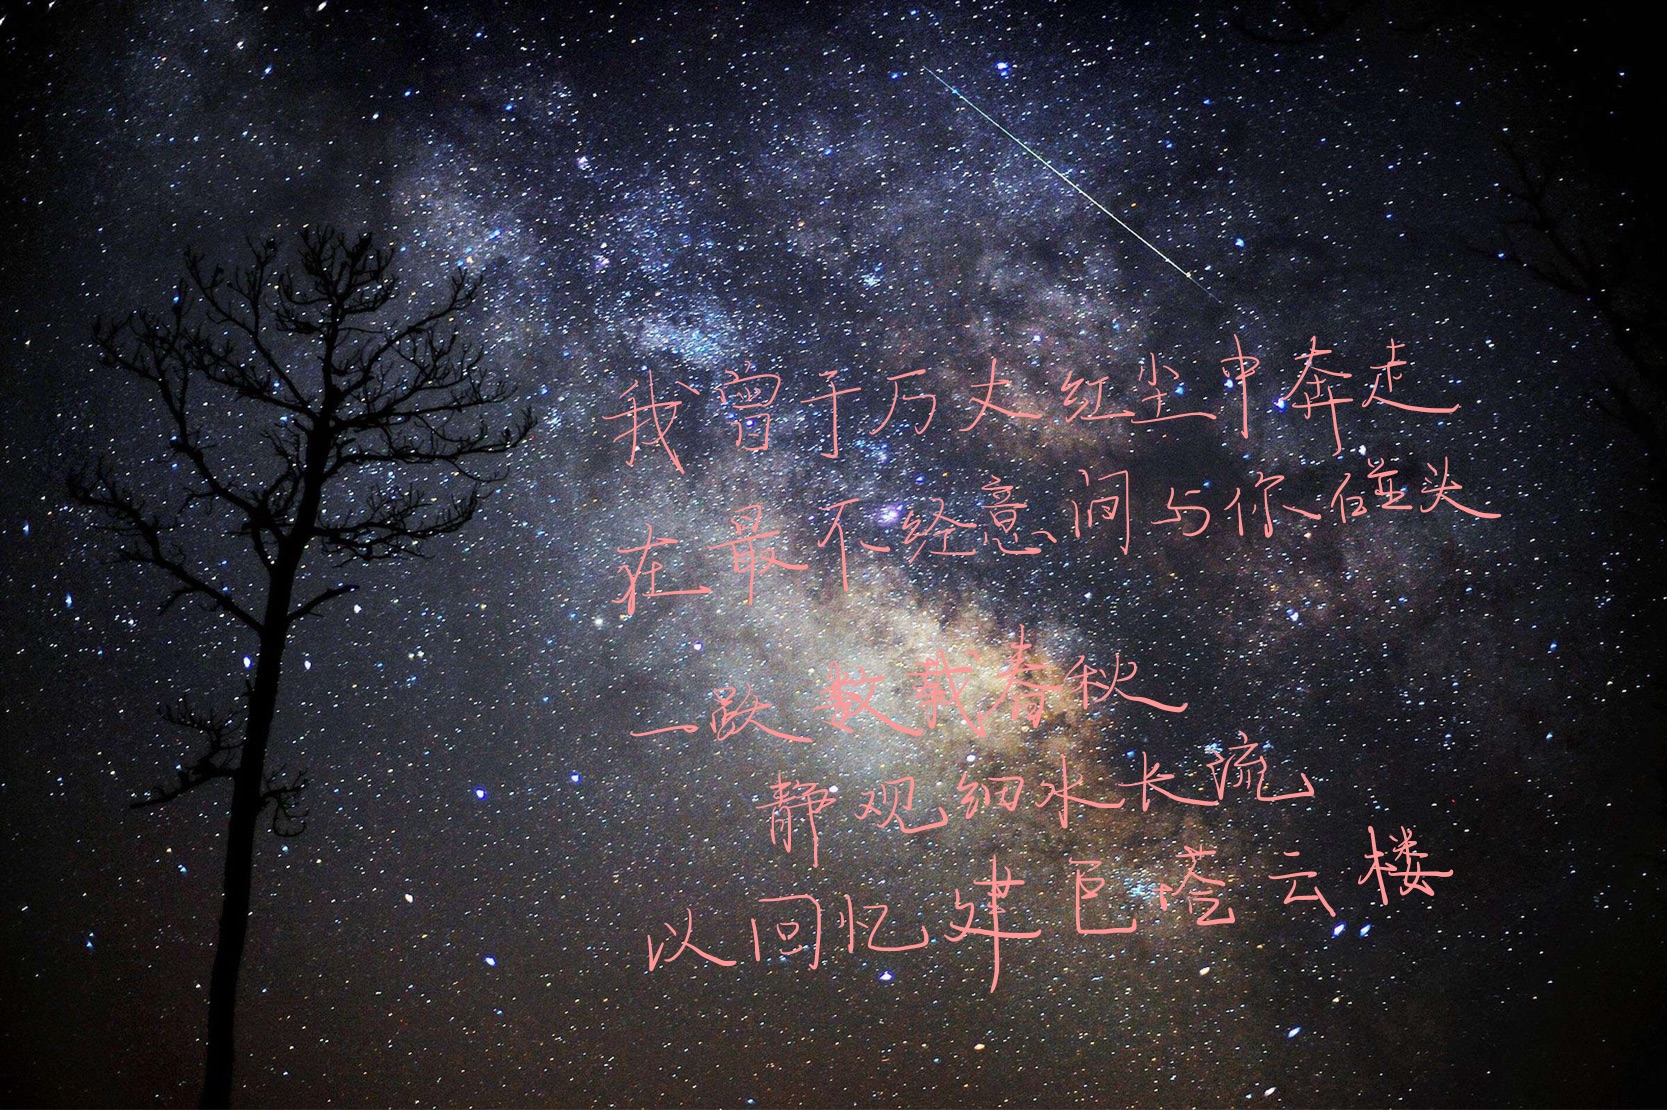 我曾于万丈红尘中奔走
在最不经意间与你碰头
一跌数载春秋
静观细水长流
以回忆建巨塔云楼